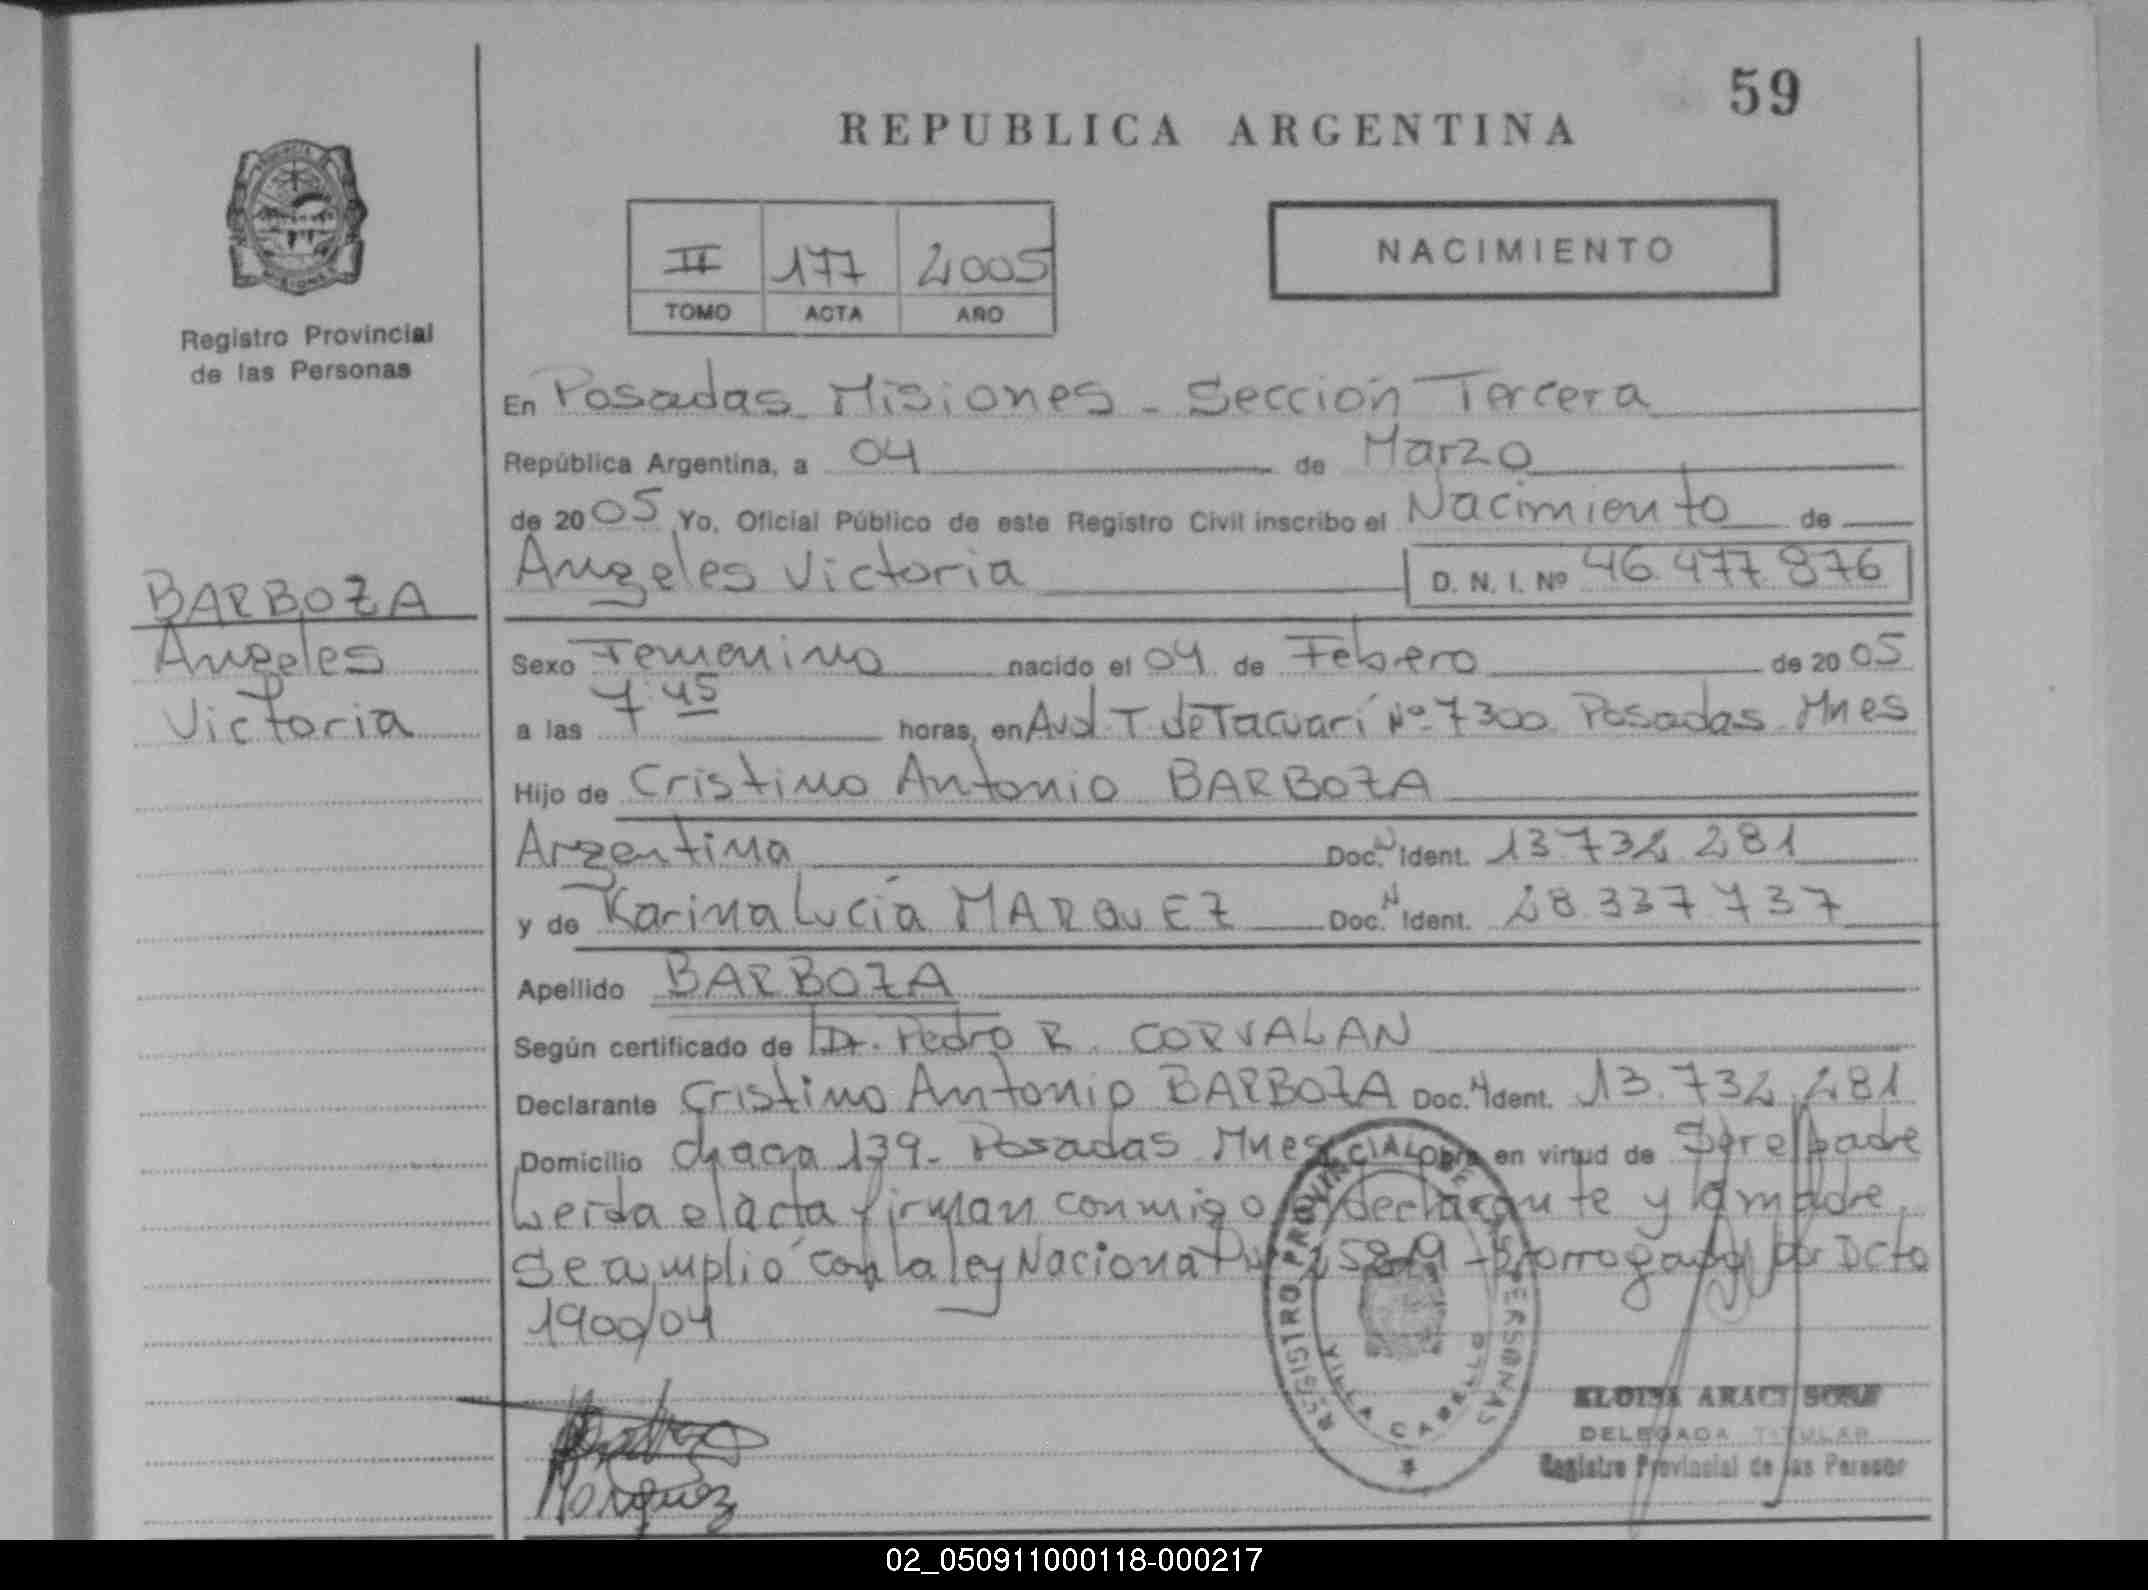 59
REPUBLICA ARGENTINA
II 177 2005
TOMO ACTA AÑO
NACIMIENTO
Registro Provincial
de las Personas
En Posadas Misiones - Sección Tercera
República Argentina, a 04 de Marzo
de 2005 Yo, Oficial Público de este Registro Civil inscribo el Nacimiento de
Angeles Victoria D. N. I. Nº 46.477.876
BARBOZA
Angeles
Victoria
Sexo Femenino nacido el 04 de Febrero de 2005
a las 7:45 horas, en Avd. T. de Tacuarí Nº 7300 Posadas Mnes
Hijo de Cristino Antonio BARBOZA
Argentina Doc. N Ident. 13.732.281
y de Karina Lucía MARQUEZ Doc. N Ident. 28.337.737
Apellido BARBOZA
Según certificado de Dr. Pedro R. CORVALAN
Declarante Cristino Antonio BARBOZA Doc. N Ident. 13.732.281
Domicilio chacra 139 - Posadas Mnes Obra en virtud de Ser el padre
Leída el acta firman conmigo el declarante y la madre.
Se amplió con la ley Nacional Nº 25819 - Prorrogada por Dcto
1900/04
REGISTRO PROVINCIAL DE LAS PERSONAS
VILLA CABELLO
Marquez
ELOISA ARACI
DELEGADA TITULAR
Registro Provincial de las Personas
02_050911000118-000217